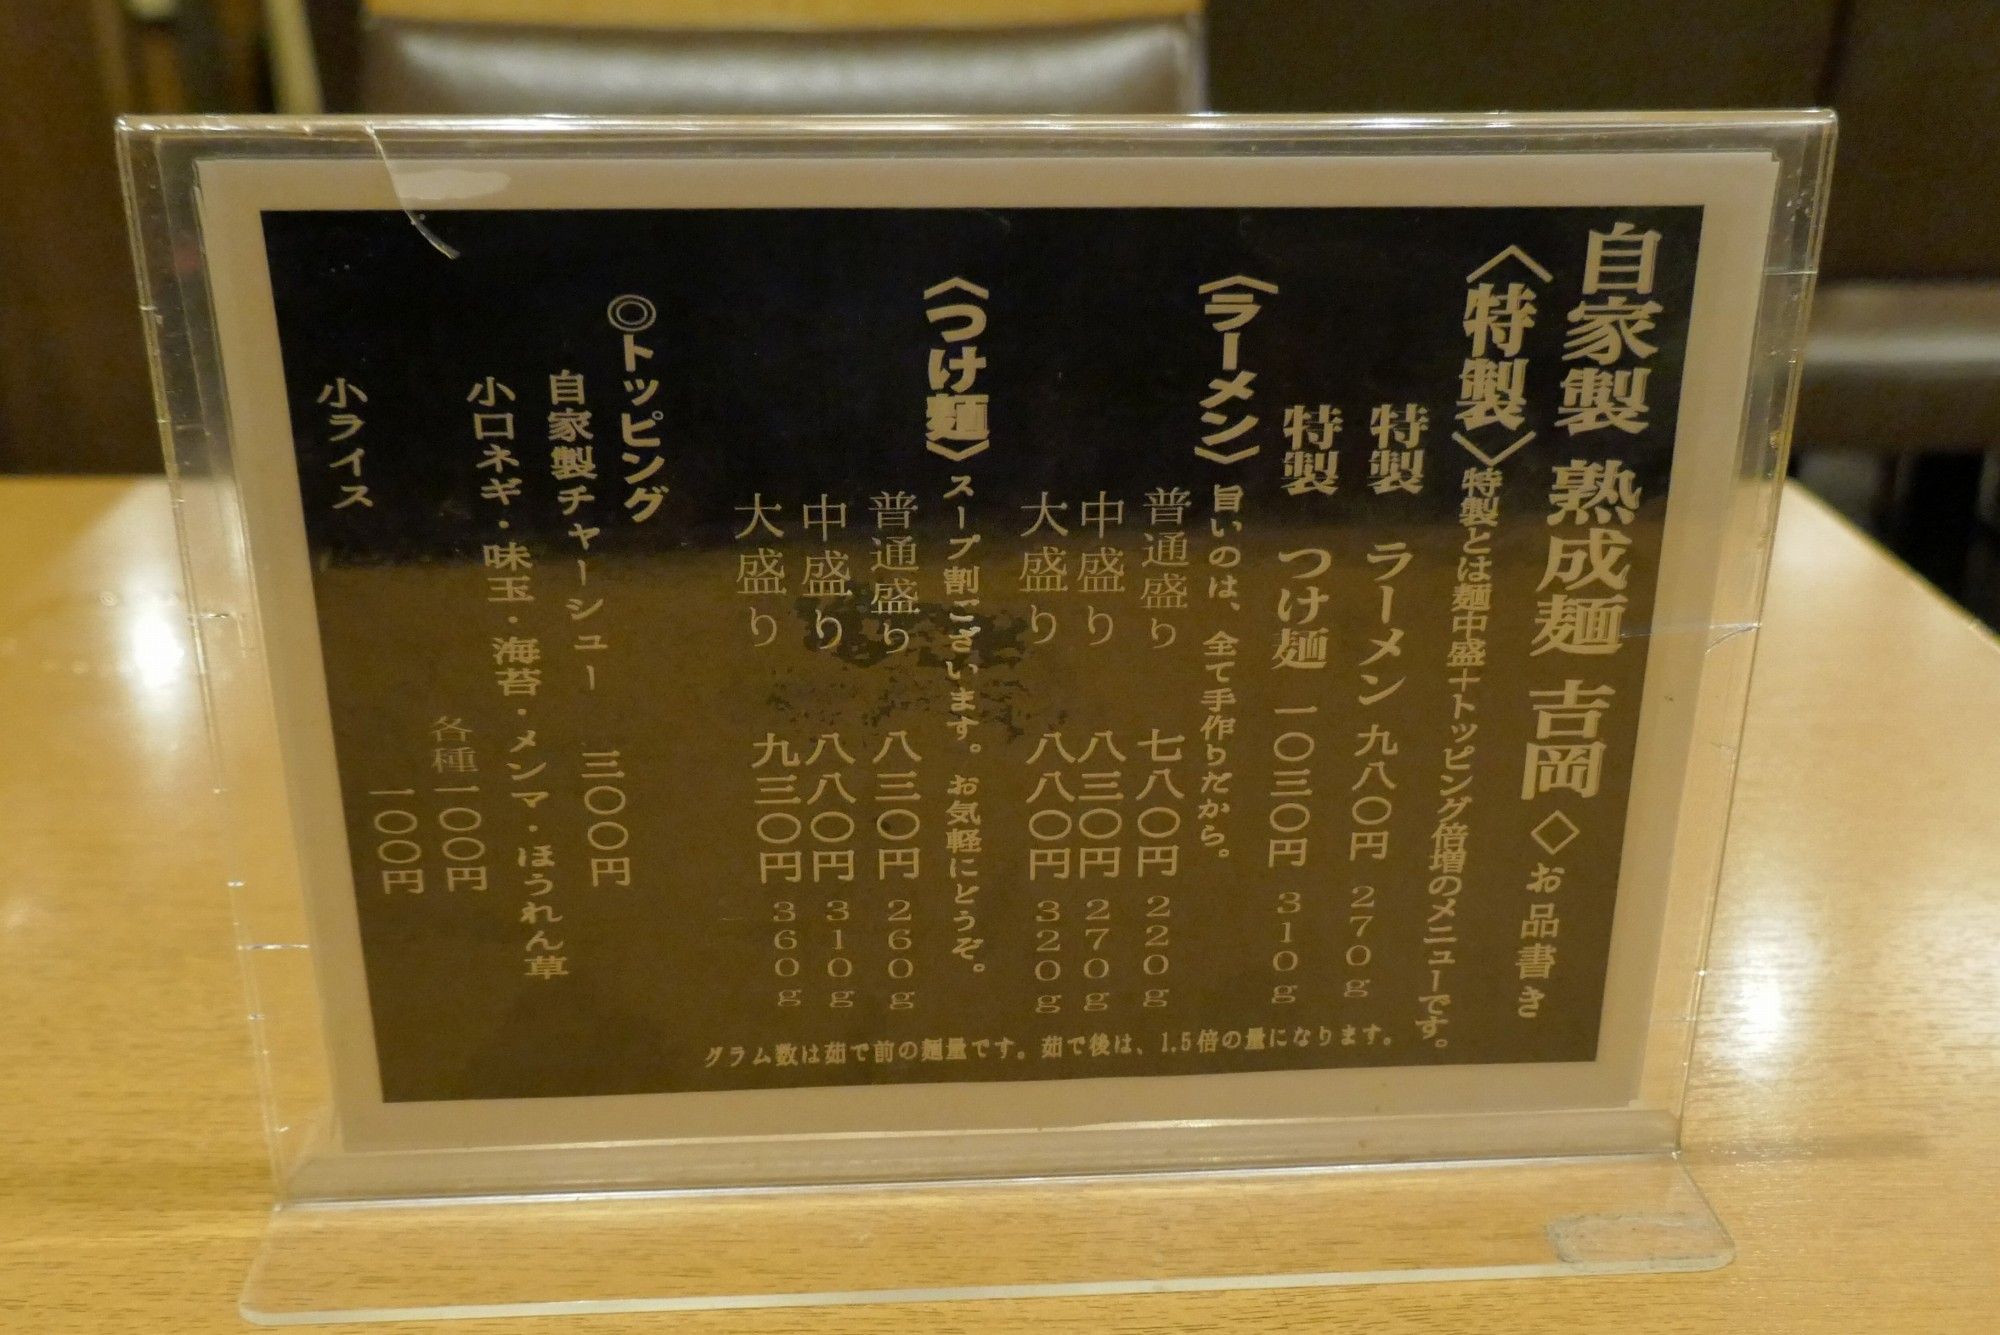 自家製 熟成麺 吉岡 ◇ お品書き
〈特製〉特製とは麺中盛＋トッピング倍増のメニューです。
特製 ラーメン 九八〇円 270g
特製 つけ麺 一〇三〇円 310g
〈ラーメン〉旨いのは、全て手作りだから。
普通盛り 七八〇円 220g
中盛り 八三〇円 270g
大盛り 八八〇円 320g
〈つけ麺〉スープ割ございます。お気軽にどうぞ。
普通盛り 八三〇円 260g
中盛り 八八〇円 310g
大盛り 九三〇円 360g
◎トッピング
自家製チャーシュー 三〇〇円
小口ネギ・味玉・海苔・メンマ・ほうれん草
各種一〇〇円
小ライス 一〇〇円
グラム数は茹で前の麺量です。茹で後は、1.5倍の量になります。